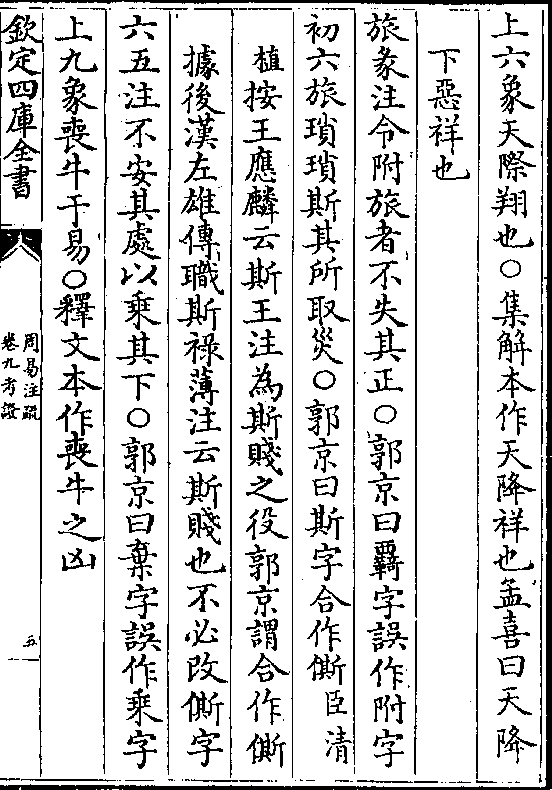 上六象天際翔也○集解本作天降祥也孟喜曰天降
下惡祥也
旅彖注令附旅者不失其正○郭京曰羇字誤作附字
初六旅瑣瑣斯其所取災○郭京曰斯字合作㒋臣清
植按王應麟云斯王注為斯賤之役郭京謂合作㒋
據後漢左雄傳職斯祿薄注云斯賤也不必改㒋字
六五注不安其處以乘其下○郭京曰棄字誤作乘字
上九象喪牛于易○釋文本作喪牛之凶
欽定四庫全書
周易注疏
卷九考證
五